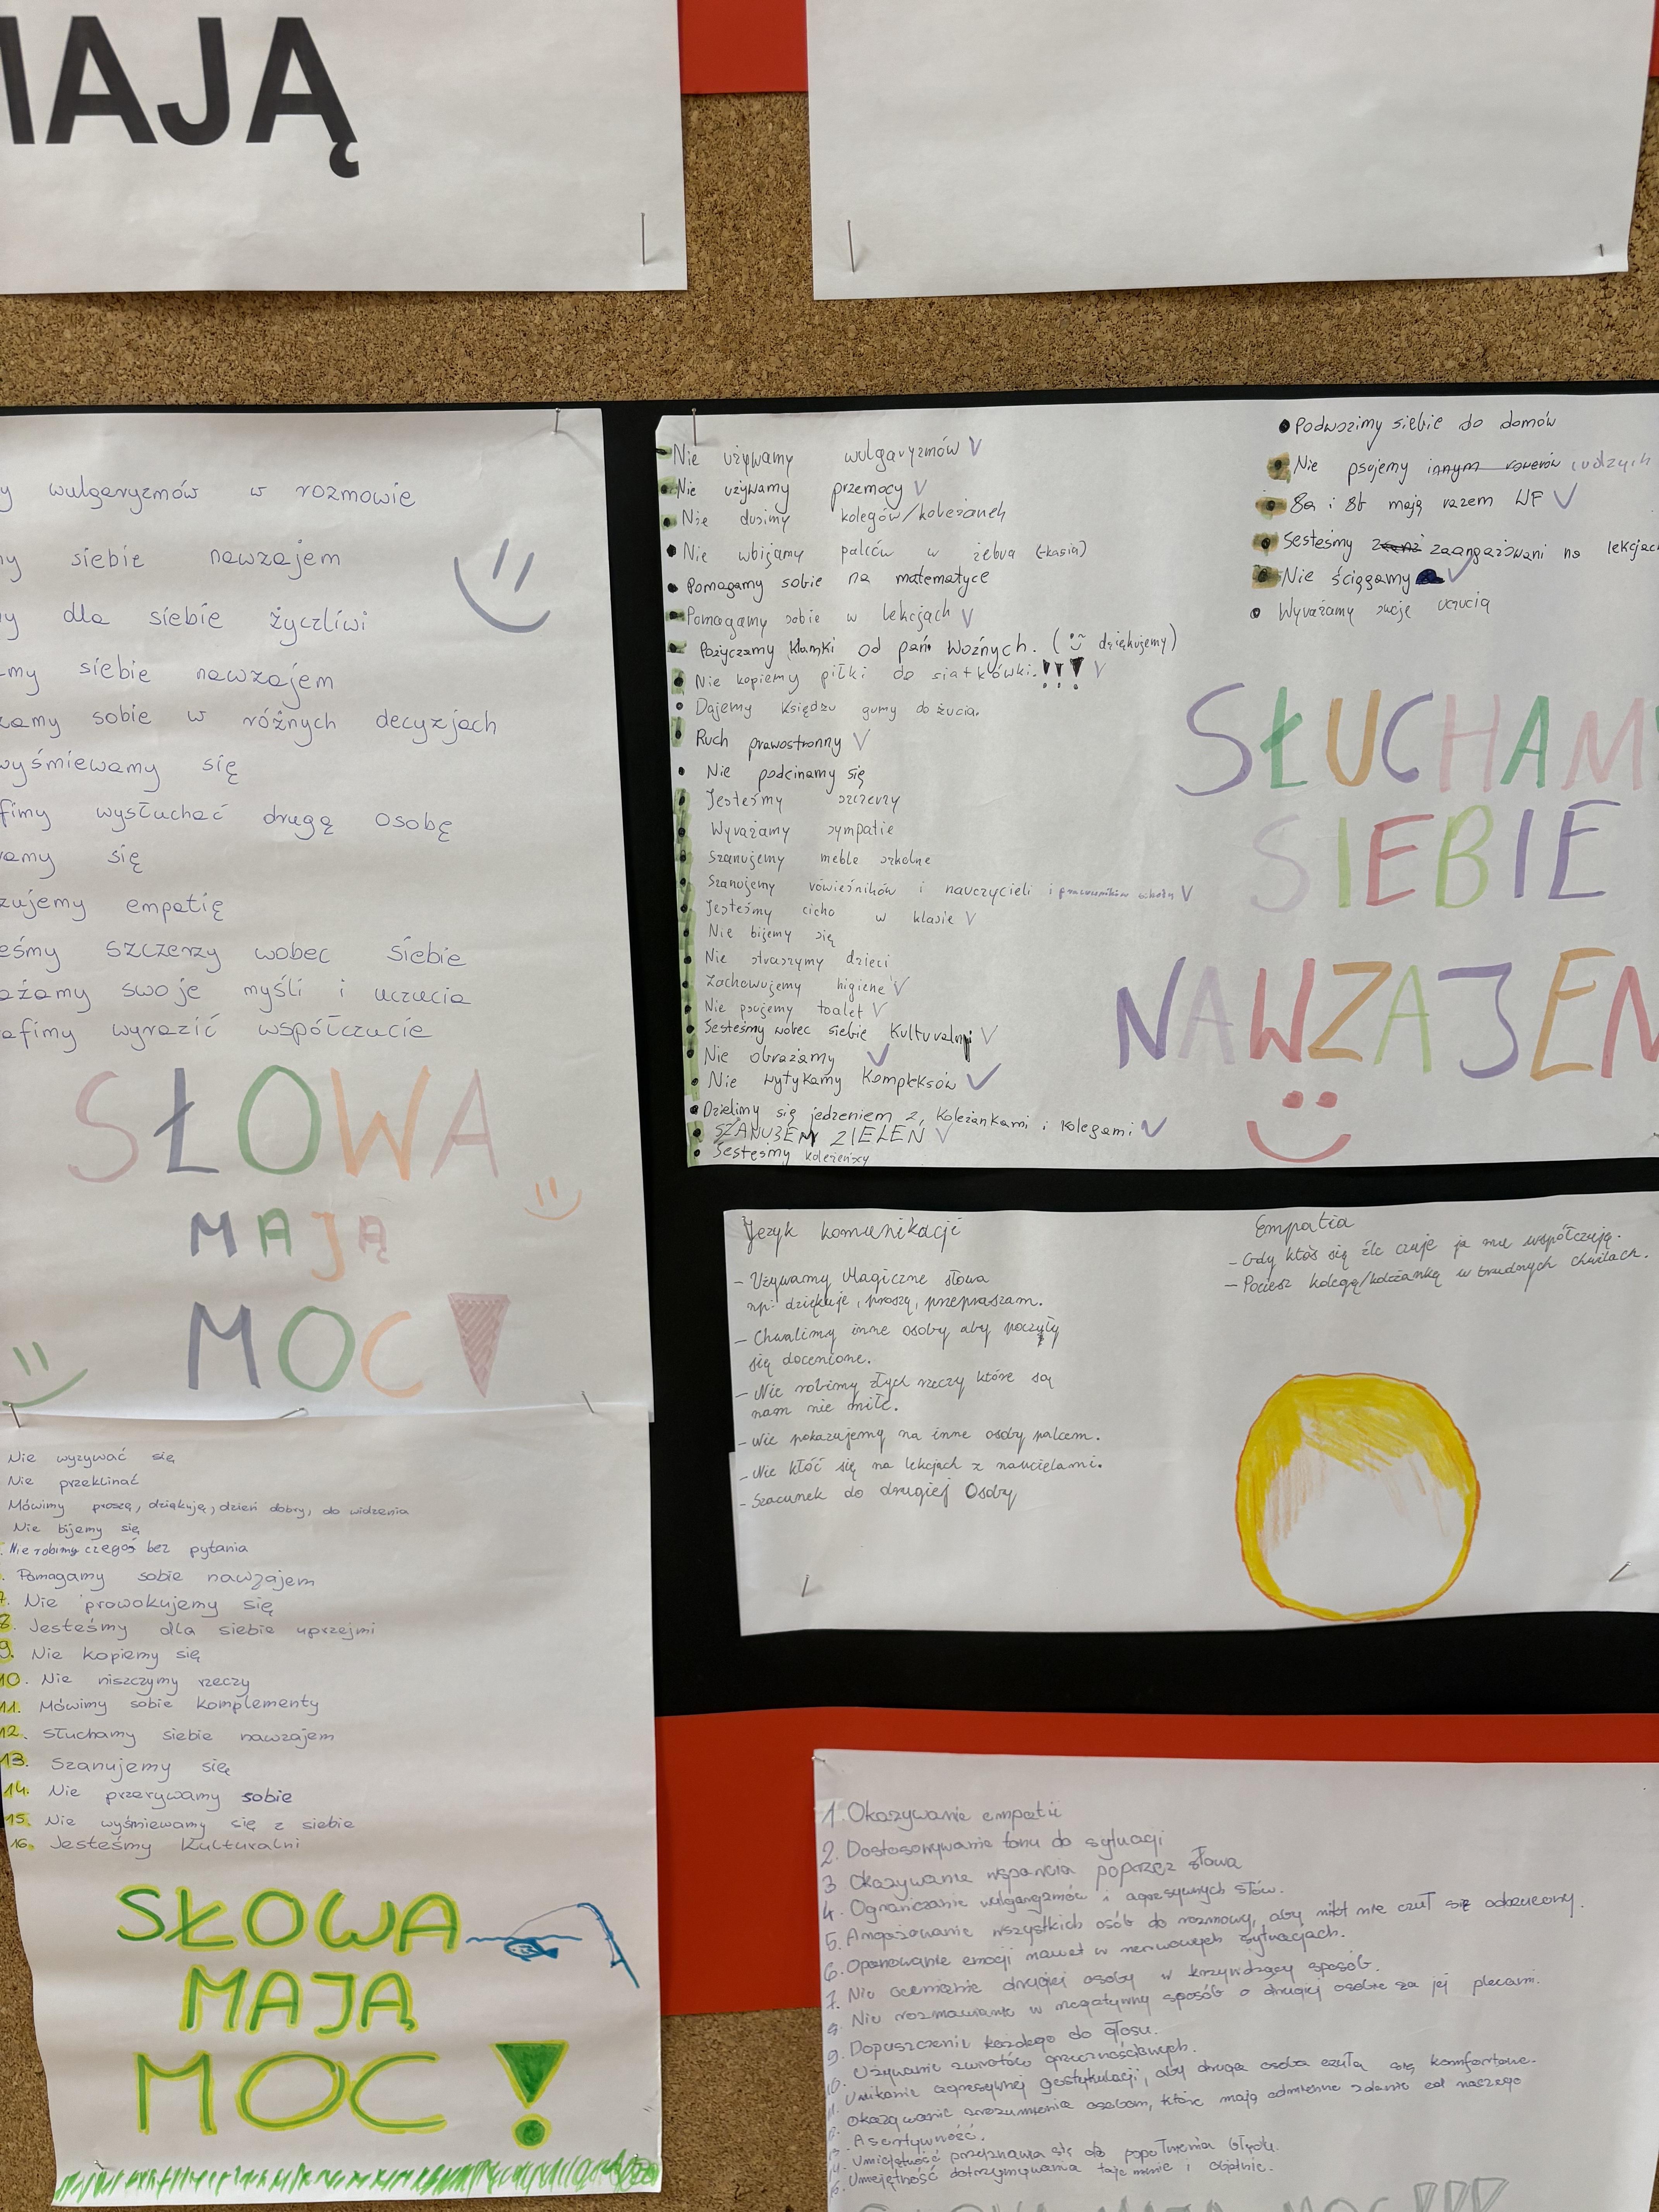 MAJĄ
wulgaryzmów w rozmowie
siebie nawzajem
dla siebie życzliwi
siebie nawzajem
sobie w różnych decyzjach
wyśmiewamy się
wysłuchać drugą osobę
się
empatię
szczerzy wobec siebie
swoje myśli i uczucia
wyrazić współczucie
SŁOWA
MAJĄ
MOC!
Nie wyzywać się
Nie przeklinać
Mówimy proszę, dziękuję, dzień dobry, do widzenia
Nie bijemy się
Nie robimy czegoś bez pytania
Pomagamy sobie nawzajem
7. Nie prowokujemy się
8. Jesteśmy dla siebie uprzejmi
9. Nie kopiemy się
10. Nie niszczymy rzeczy
11. Mówimy sobie komplementy
12. Słuchamy siebie nawzajem
13. Szanujemy się
14. Nie przerywamy sobie
15. Nie wyśmiewamy się z siebie
16. Jesteśmy kulturalni
SŁOWA
MAJĄ
MOC!
• Nie używamy wulgaryzmów V
• Nie używamy przemocy V
• Nie dusimy kolegów/koleżanek
• Nie wbijamy palców w żebra (-kasia)
• Pomagamy sobie na matematyce
• Pomagamy sobie w lekcjach V
• Pożyczamy klamki od pań Woźnych. (dziękujemy)
• Nie kopiemy piłki do siatkówki.!!! V
• Dajemy Księdzu gumy do żucia.
• Ruch prawostronny V
• Nie podcinamy się
• Jesteśmy szczerzy
• Wyrażamy sympatie
• Szanujemy meble szkolne
• Szanujemy rówieśników i nauczycieli i pracowników szkoły V
• Jesteśmy cicho w klasie V
• Nie bijemy się
• Nie straszymy dzieci
• Zachowujemy higiene V
• Nie psujemy toalet V
• Jesteśmy wobec siebie kulturalni V
• Nie obrażamy V
• Nie wytykamy kompleksów V
• Dzielimy się jedzeniem z koleżankami i kolegami V
• SZANUJEMY ZIELEŃ V
• Jesteśmy koleżeńscy
• Podwozimy siebie do domów
• Nie psujemy innym rowerów cudzych
• 8a i 8b mają razem WF V
• Jesteśmy zaangażowani na lekcjach
• Nie ściągamy V
• Wyrażamy swoje uczucia
SŁUCHAMY
SIEBIE
NAWZAJEM
Język komunikacji
- Używamy Magiczne słowa
np: dziękuje, proszę, przepraszam.
- Chwalimy inne osoby aby poczyły
się docenione.
- Nie robimy złych rzeczy które są
nam nie miłe.
- Nie pokazujemy na inne osoby palcem.
- Nie kłóć się na lekcjach z naucielami.
- Szacunek do drugiej Osoby
Empatia
- Gdy ktoś się źle czuje ja mu współczują.
- Pociesz kolegę/koleżankę w trudnych chwilach.
1. Okazywanie empatii
2. Dostosowywanie tonu do sytuacji
3 Okazywanie wsparcia poprzez słowa
4. Ograniczanie wulgaryzmów i agresywnych słów.
5. Angażowanie wszystkich osób do rozmowy, aby nikt nie czuł się odrzucony.
6. Opanowanie emocji nawet w nerwowych sytuacjach.
7. Nie ocenianie drugiej osoby w krzywdzący sposób.
8. Nie rozmawianie w negatywny sposób o drugiej osobie za jej plecami.
9. Dopuszczenie każdego do głosu.
10. Używanie zwrotów grzecznościowych.
11. Unikanie agresywnej gestykulacji, aby druga osoba czuła się komfortowo.
Okazywanie zrozumienia osobom, które mają odmienne zdanie od naszego
Asertywność.
Umiejętność przyznawania się do popełnienia błędu.
Umiejętność dotrzymywania tajemnic i obietnic.
SŁOWA MAJĄ MOC!!!